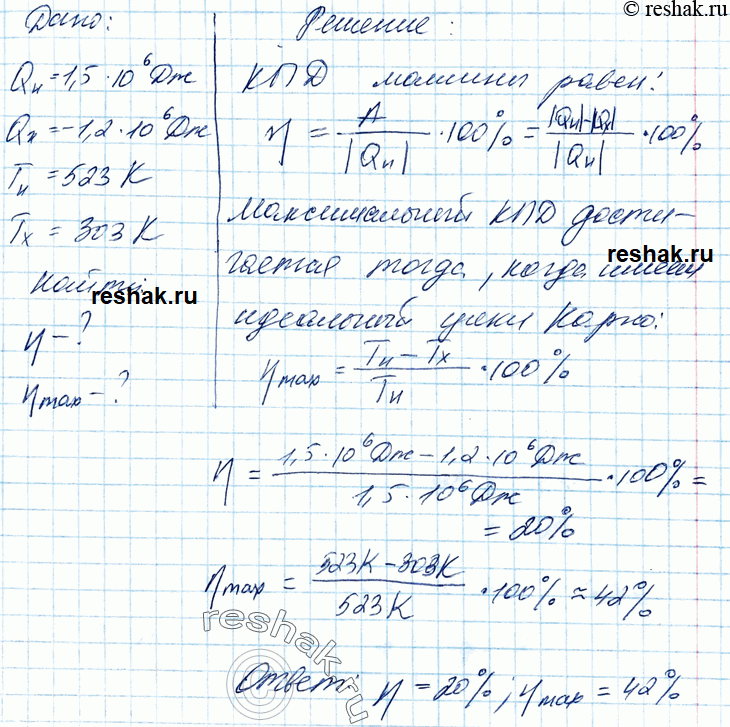 © reshak.ru
Дано:
Qн = 1,5 · 10⁶ Дж
Qх = -1,2 · 10⁶ Дж
Tн = 523 К
Tх = 303 К
Найти:
reshak.ru
η - ?
ηmax - ?
Решение:
КПД машины равен:
η = A / |Qн| · 100% = |Qн|-|Qх| / |Qн| · 100%
Максимальный КПД дости-
гается тогда, когда имеем
reshak.ru
идеальный цикл Карно:
ηmax = Tн - Tх / Tн · 100%
η = 1,5 · 10⁶ Дж - 1,2 · 10⁶ Дж / 1,5 · 10⁶ Дж · 100% =
= 20%
ηmax = 523К - 303К / 523К · 100% ≈ 42%
reshak.ru
©
Ответ: η = 20%; ηmax = 42%